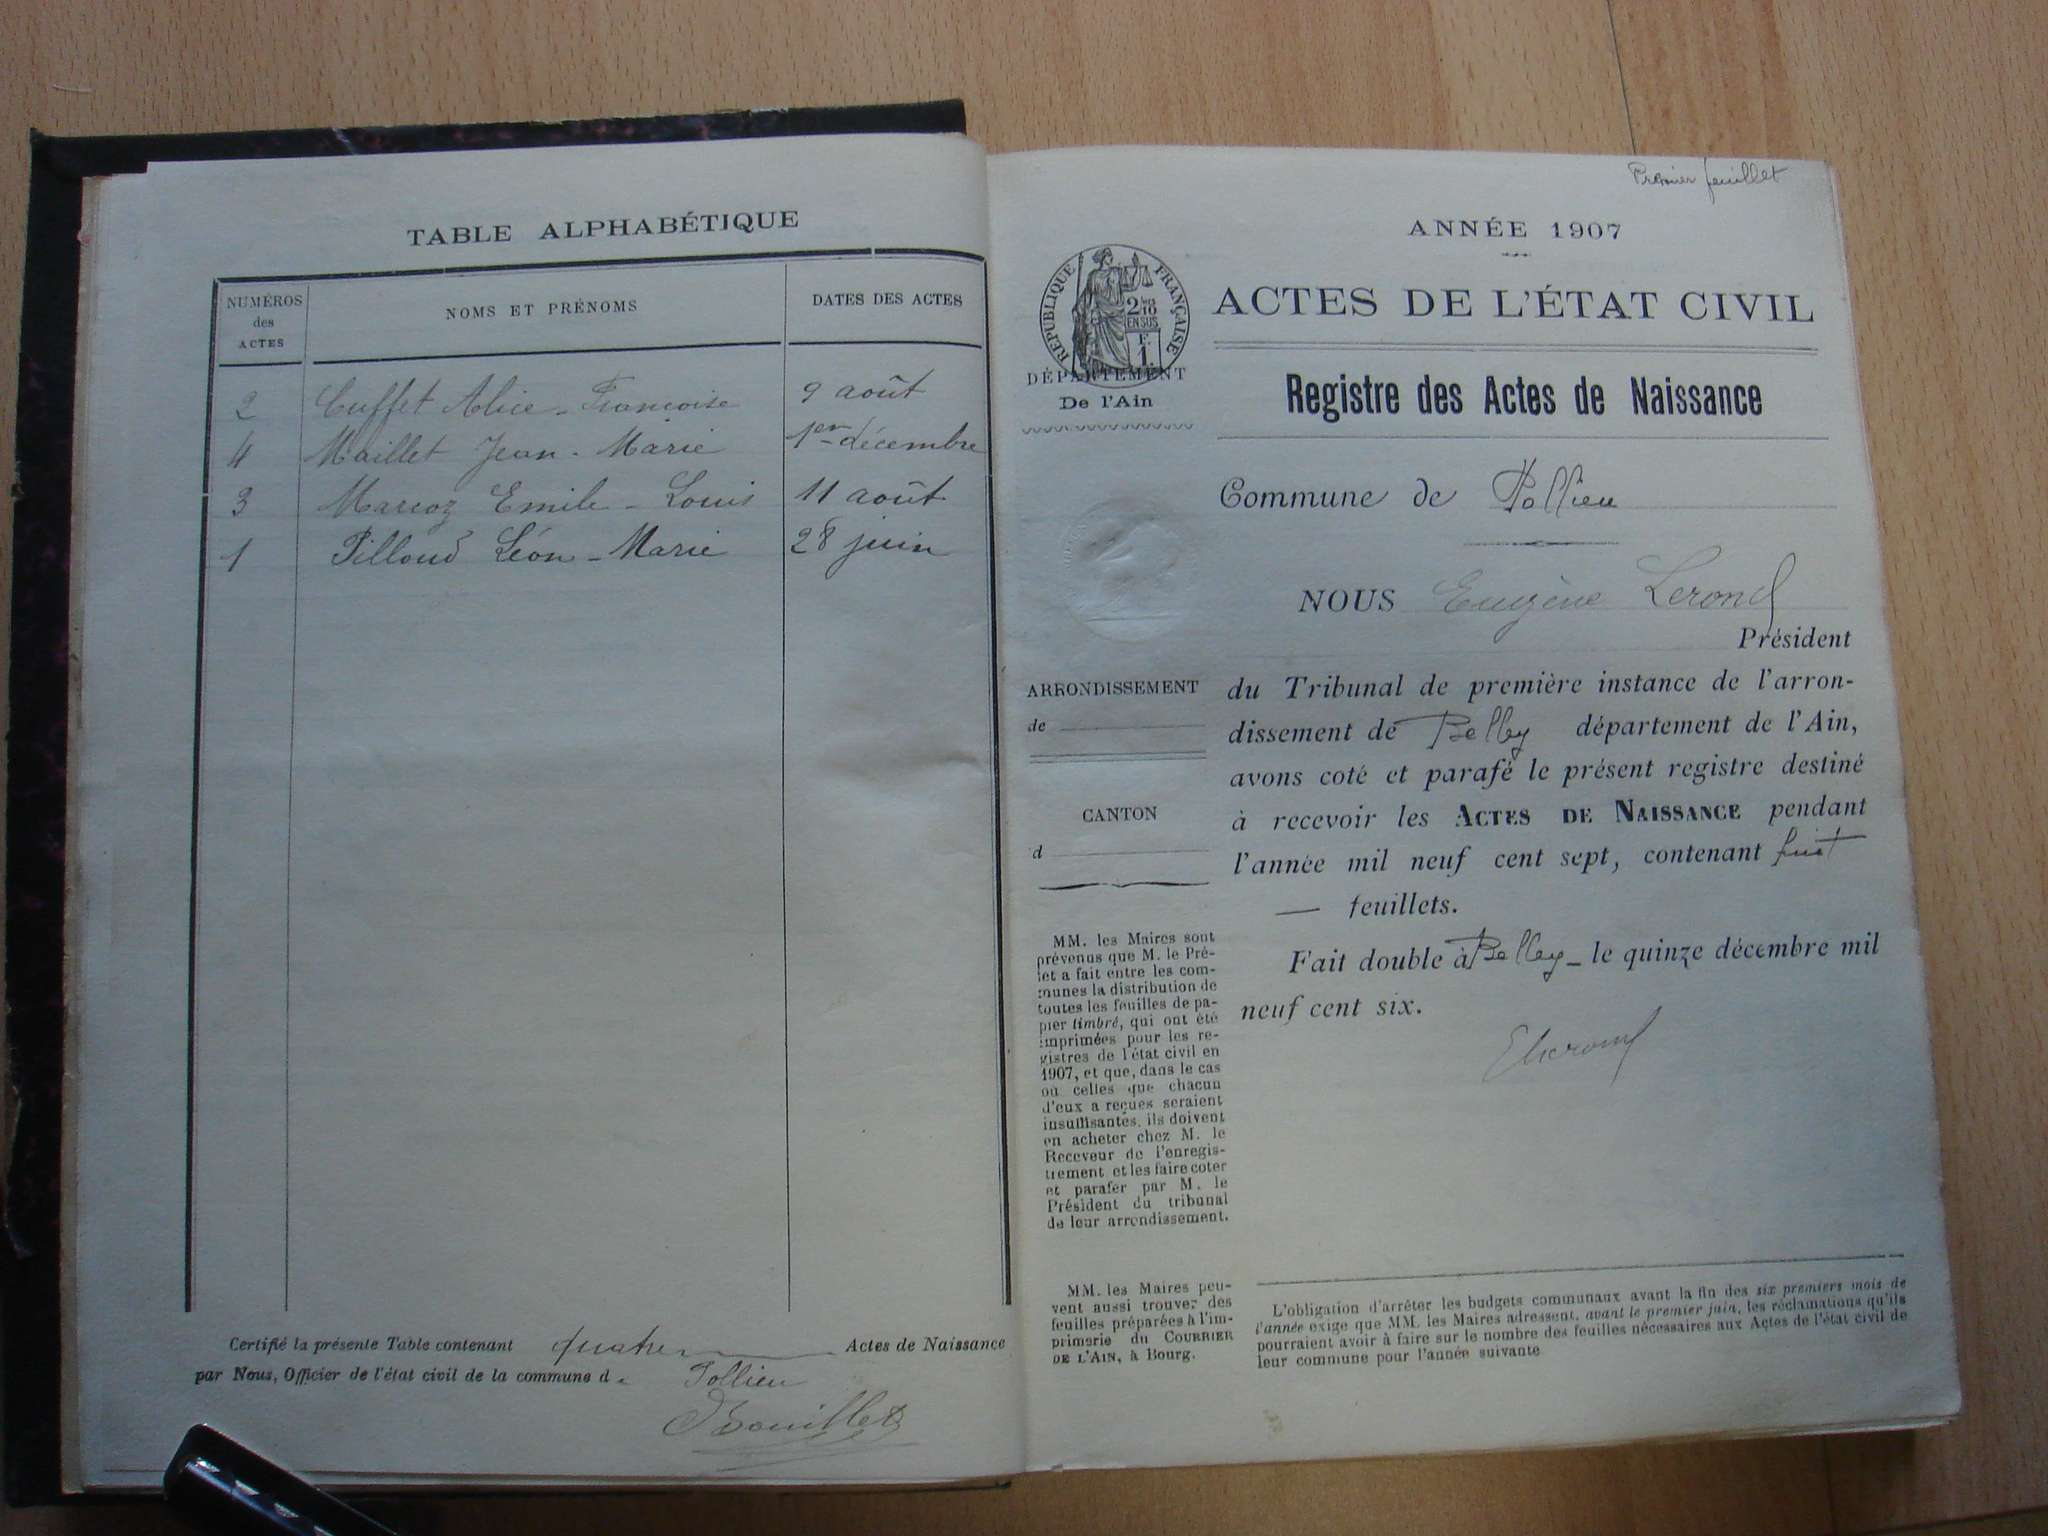 TABLE ALPHABÉTIQUE
NUMÉROS des ACTES
NOMS ET PRÉNOMS
DATES DES ACTES
2 Cuffet Alice - Françoise 9 août
4 Maillet Jean - Marie 1er décembre
3 Marcoz Emile - Louis 11 août
1 Pilloud Léon - Marie 28 juin
Certifié la présente Table contenant quatre Actes de Naissance
par Nous, Officier de l'état civil de la commune d Pollieu
Premier feuillet
ANNÉE 1907
RÉPUBLIQUE FRANÇAISE
2/10
EN SUS
F.
1
ACTES DE L'ÉTAT CIVIL
DÉPARTEMENT
De l'Ain
Registre des Actes de Naissance
Commune de Pollieu
NOUS Eugène Lerond
Président
ARRONDISSEMENT
de
du Tribunal de première instance de l'arron-
dissement de Belley département de l'Ain,
avons coté et parafé le présent registre destiné
à recevoir les ACTES DE NAISSANCE pendant
l'année mil neuf cent sept, contenant huit
— feuillets.
Fait double à Belley - le quinze décembre mil
neuf cent six.
CANTON
d
MM. les Maires sont
prévenus que M. le Pré-
fet a fait entre les com-
munes la distribution de
toutes les feuilles de pa-
pier timbré, qui ont été
imprimées pour les re-
gistres de l'état civil en
1907, et que, dans le cas
où celles que chacun
d'eux a reçues seraient
insuffisantes, ils doivent
en acheter chez M. le
Receveur de l'enregis-
trement et les faire coter
et parafer par M. le
Président du tribunal
de leur arrondissement.
MM. les Maires peu-
vent aussi trouver des
feuilles préparées à l'im-
primerie du COURRIER
DE L'AIN, à Bourg.
L'obligation d'arrêter les budgets communaux avant la fin des six premiers mois de
l'année exige que MM. les Maires adressent, avant le premier juin, les réclamations qu'ils
pourraient avoir à faire sur le nombre des feuilles nécessaires aux Actes de l'état civil de
leur commune pour l'année suivante